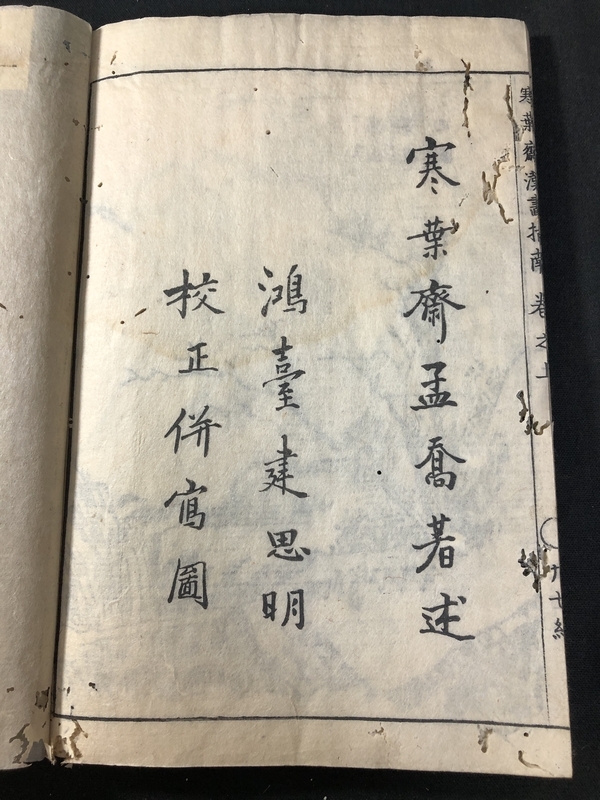 寒葉齋孟喬著述
鴻臺建思明
校正併寫圖
寒葉齋漢畫指南 卷之上